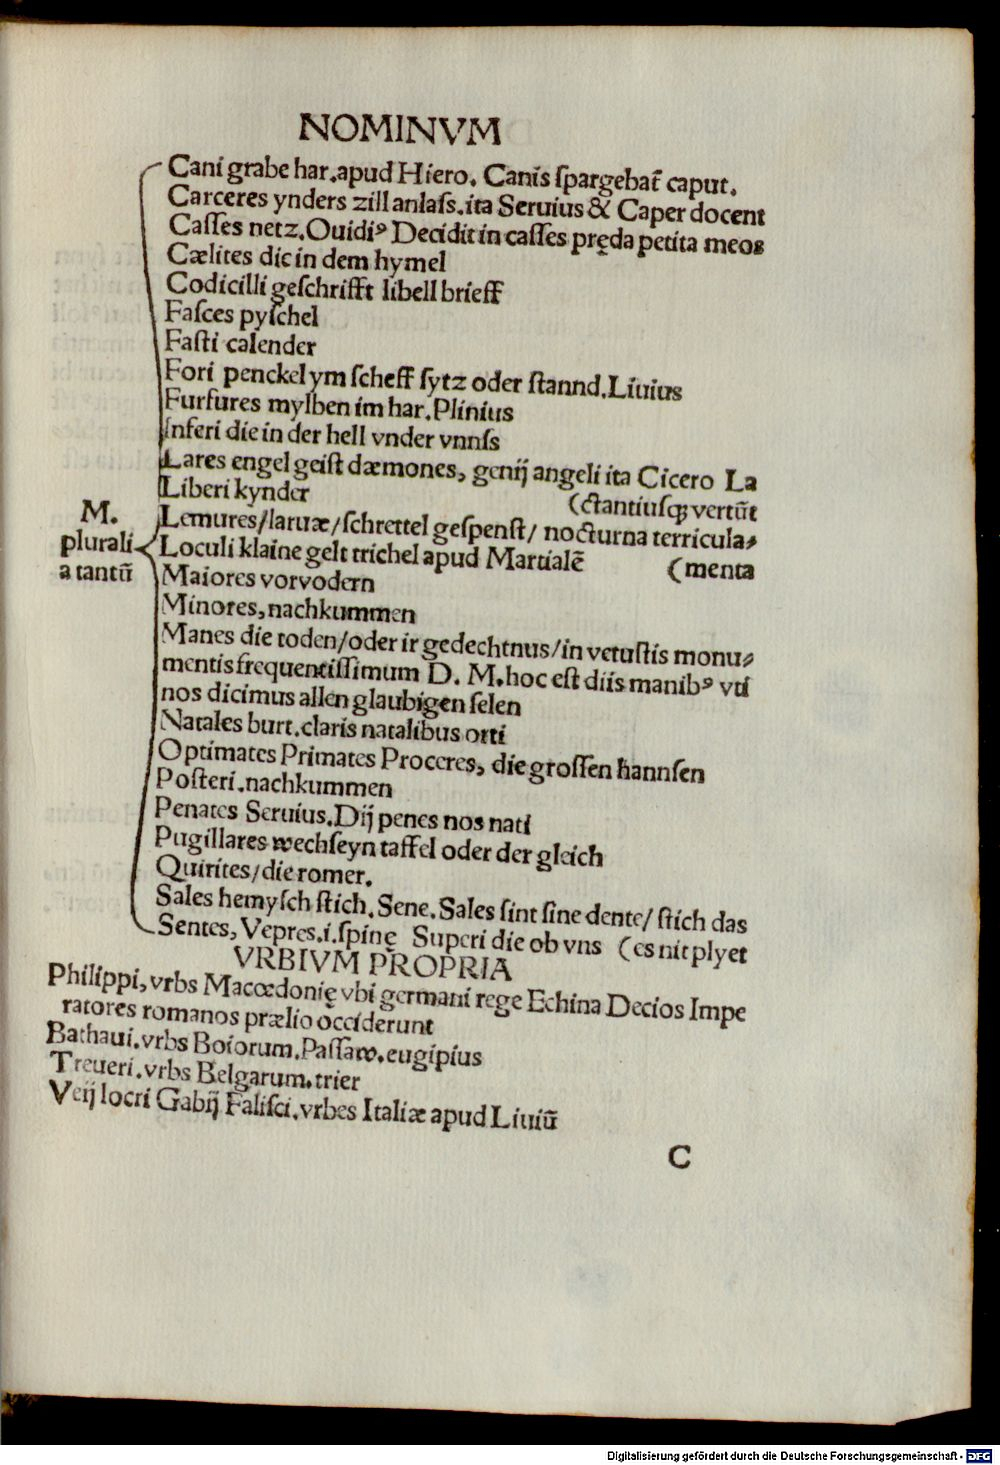 NOMINVM
Cani grabe har.apud Hiero. Canis ſpargebat̄ caput.
Carceres ynders zill anlaſs.ita Seruius & Caper docent
Caſſes netz.Ouidiꝰ Decidit in caſſes pręda petita meos
Cælites dic in dem hymel
Codicilli geſchrifft libell brieff
Faſces pyſchel
Faſti calender
Fori penckel ym ſcheff ſytz oder ſtannd.Liuius
Furfures mylben im har.Plinius
Inferi die in der hell vnder vnnſs
Lares engel geiſt dæmones, genij angeli ita Cicero La
Liberi kynder (ctantiuſqꝫ vertūt
M. plurali a tantū
Lemures/laruæ/ſchrettel geſpenſt/ nocturna terricula⸗
Loculi klaine gelt trichel apud Martialē (menta
Maiores vorvodern
Minores,nachkummen
Manes die toden/oder ir gedechtnus/in vetuſtis monu⸗
mentis frequentiſſimum D. M.hoc eſt diis manibꝰ vti
nos dicimus allen glaubigen ſelen
Natales burt.claris natalibus orti
Optimates Primates Proceres, die groſſen hannſen
Poſteri.nachkummen
Penates Seruius.Dij penes nos nati
Pugillares wechſeyn taffel oder der gleich
Quirites/die romer.
Sales hemyſch ſtich.Sene.Sales ſint ſine dente/ ſtich das
Sentes, Vepres.i.ſpinę Superi die ob vns (es nit plyet
VRBIVM PROPRIA
Philippi,vrbs Macœdonię vbi germani rege Echina Decios Impe
ratores romanos prælio occiderunt
Bathaui.vrbs Boiorum.Paſſaw.eugipius
Treueri.vrbs Belgarum.trier
Veij locri Gabij Faliſci.vrbes Italiæ apud Liuiū
C
Digitalisierung gefördert durch die Deutsche Forschungsgemeinschaft - DFG